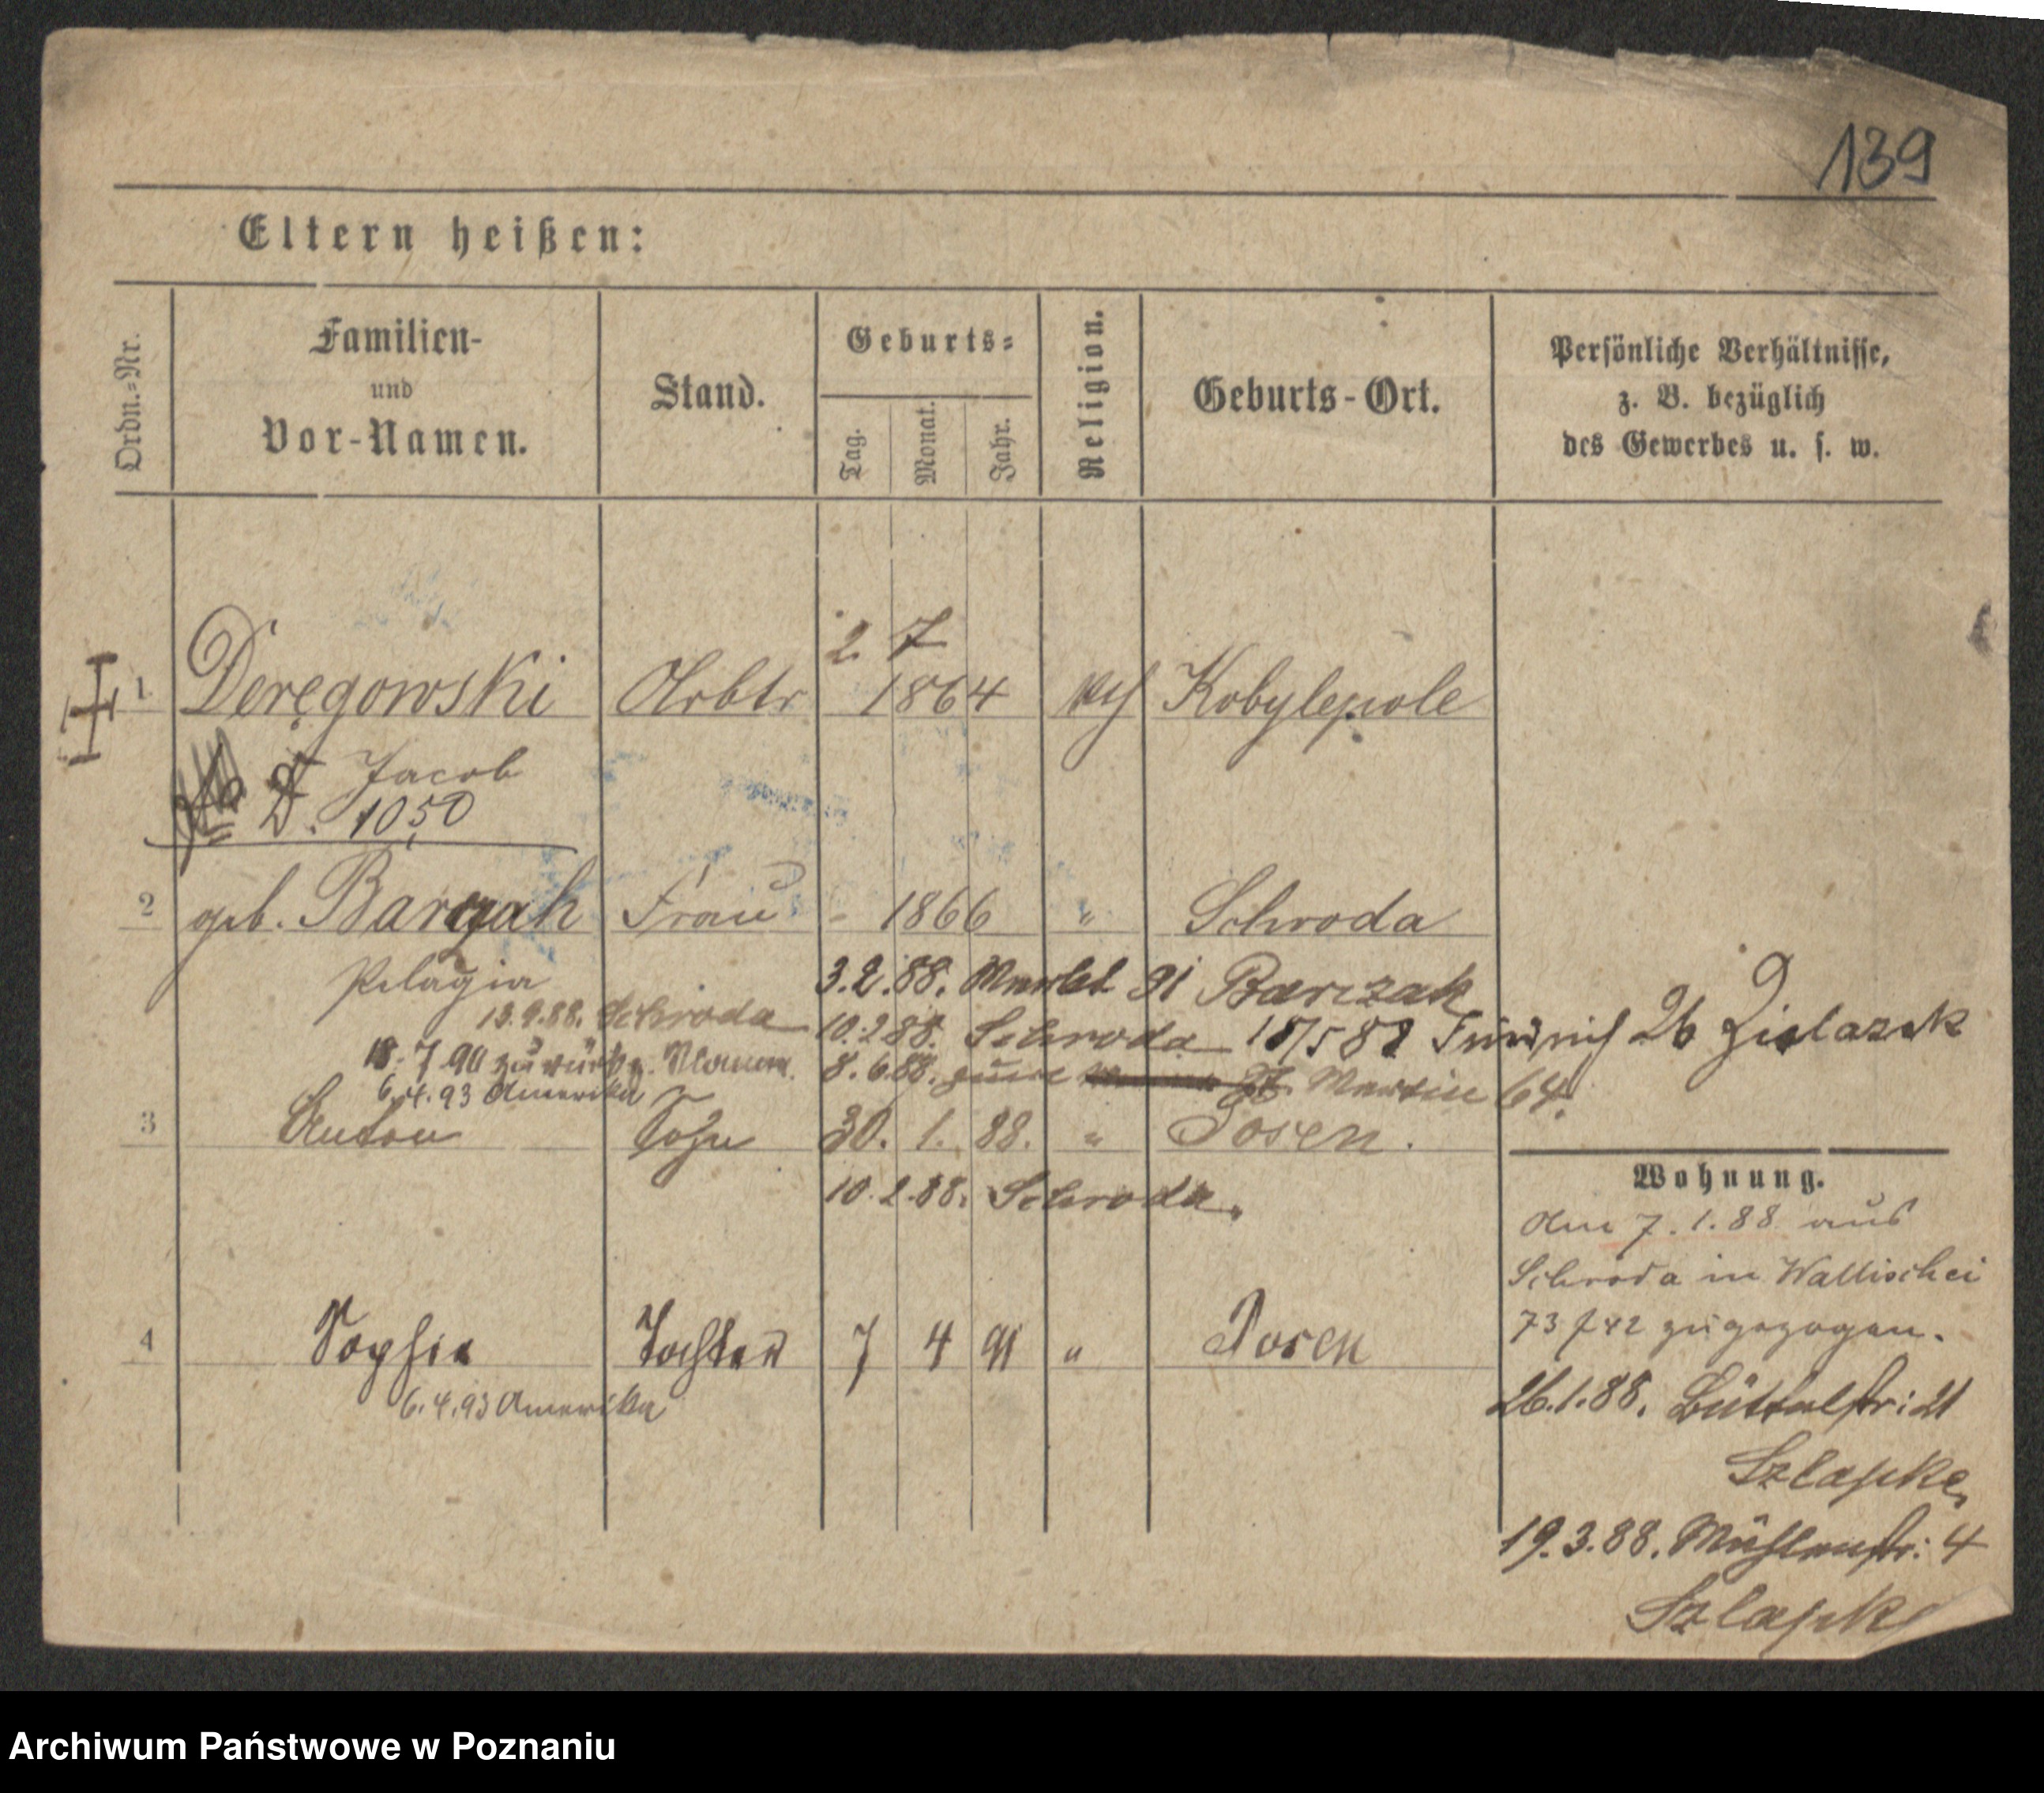 139
Eltern heißen:
Ordn.=Nr.
Familien-
und
Vor-Namen.
Stand.
Geburts=
Tag.
Monat.
Jahr.
Religion.
Geburts-Ort.
Persönliche Verhältnisse,
z. B. bezüglich
des Gewerbes u. s. w.
2. 7
1 Deręgowski Arbtr 1864 kth Kobylepole
Jacob
D. 1050
2 geb. Barczak Frau - 1866 " Schroda
Pelagia
3.2.88. Markt 91 Barczak
13.9.88. Schroda
10.2.88. Schroda 18/5 88 26 Zielazek
18.7.90 zurück z. Mann.
8.6.88. St. Martin 64.
6.4.93 Amerika
3 Anton Sohn 30. 1. 88. " Posen.
10.2.88. Schroda.
4 Sophie Tochter 7 4 91 " Posen
6.4.93 Amerika
Wohnung.
Am 7.1.88 aus
Schroda in Wallischei
73 zugezogen.
26.1.88. Büttelstr: 21
Szlapke,
19.3.88. Mühlenstr: 4
Szlapke
Archiwum Państwowe w Poznaniu